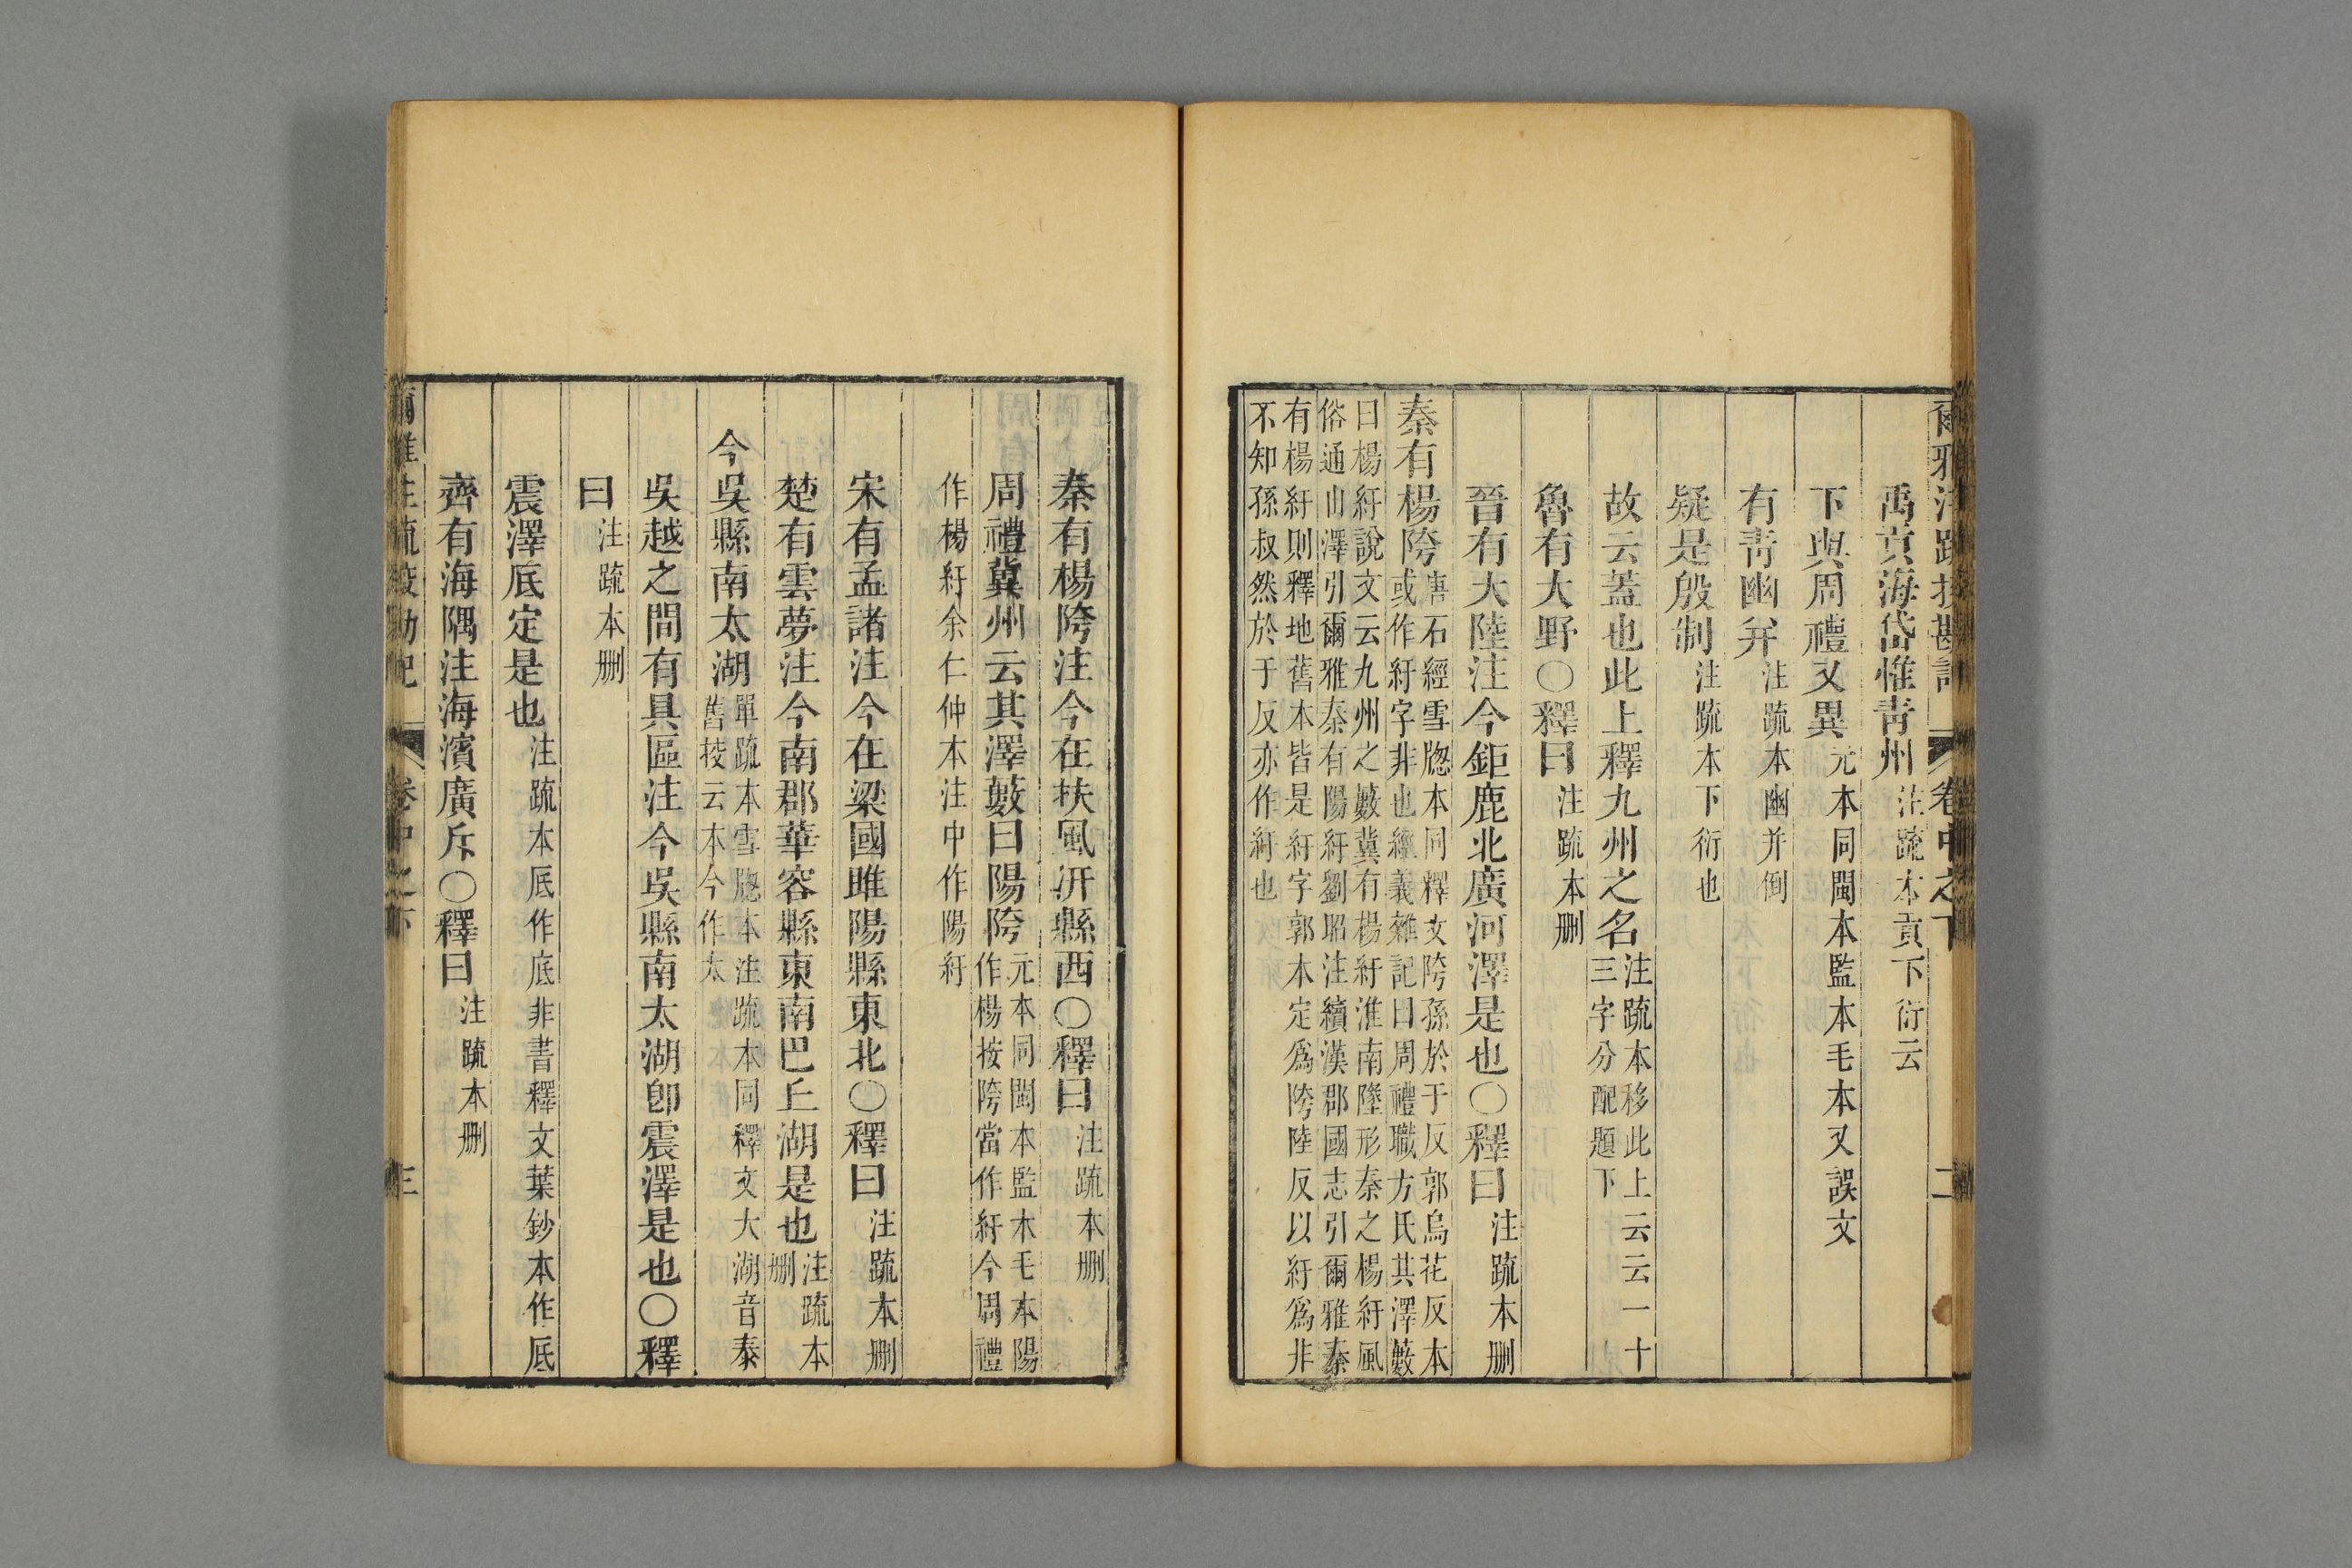 爾雅注疏挍勘記 卷中之下 二
禹貢海岱惟靑州注疏本貢下衍云
下與周禮又異元本同閩本監本毛本又誤文
有靑幽并注疏本幽并倒
疑是殷制注疏本下衍也
故云蓋也此上釋九州之名注疏本移此上云云一十三字分配題下
魯有大野○釋曰注疏本刪
晉有大陸注今鉅鹿北廣河澤是也○釋曰注疏本刪
秦有楊陓唐石經雪牕本同釋文陓孫於于反郭烏花反本或作紆字非也經義雜記曰周禮職方氏其澤藪
曰楊紆說文云九州之藪冀有楊紆淮南墬形秦之楊紆風俗通山澤引爾雅秦有陽紆劉昭注續漢郡國志引爾雅秦
有楊紆則釋地舊本皆是紆字郭本定爲陓陸反以紆爲非不知孫叔然於于反亦作紆也
秦有楊陓注今在扶風汧縣西○釋曰注疏本刪
周禮冀州云其澤藪曰陽陓元本同閩本監本毛本陽作楊按陓當作紆今周禮
作楊紆余仁仲本注中作陽紆
宋有孟諸注今在梁國睢陽縣東北○釋曰注疏本刪
楚有雲夢注今南郡華容縣東南巴丘湖是也注疏本刪
今吳縣南太湖單疏本雪牕本注疏本同釋文大湖音泰舊挍云本今作太
吳越之間有具區注今吳縣南太湖卽震澤是也○釋
曰注疏本刪
震澤底定是也注疏本厎作底非書釋文葉鈔本作厎
齊有海隅注海濱廣斥○釋曰注疏本刪
爾雅注疏挍勘記 卷中之下 三